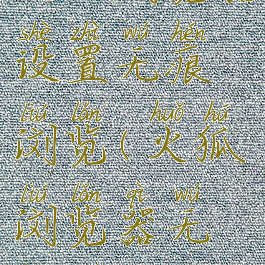 shè zhì wú hén
设置无痕
liú lǎn huǒ hú
浏览(火狐
liú lǎn qì wú
浏览器无